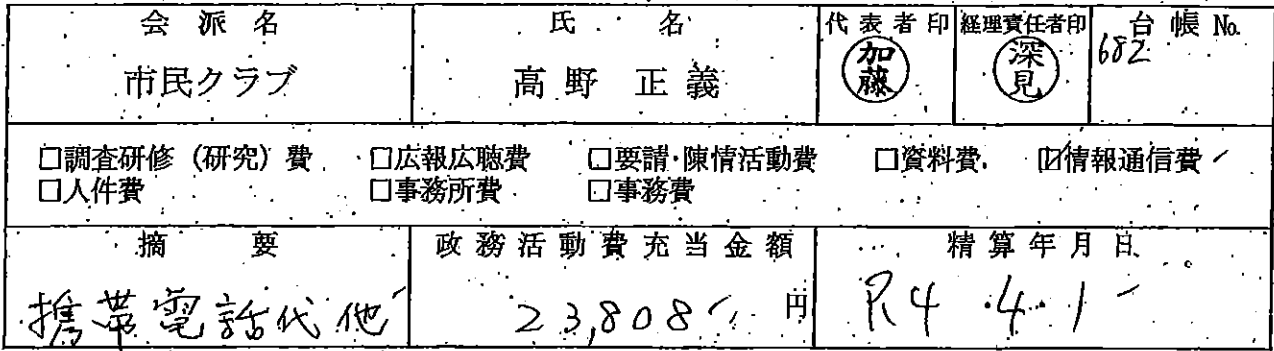 会派名 氏名 代表者印 経理責任者印 台帳No.
市民クラブ 高野 正義 加藤 深見 682
□調査研修（研究）費 □広報広聴費 □要請・陳情活動費 □資料費 ☑情報通信費
□人件費 □事務所費 □事務費
摘要 政務活動費充当金額 精算年月日
携帯電話代他 23,808 円 R4.4.1